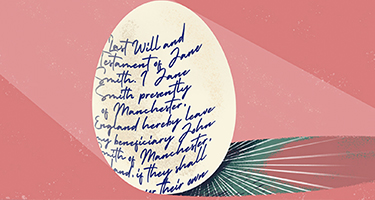 Last Will and
Testament of Jane
Smith. I Jane
Smith presently
of Manchester,
England hereby leave
my beneficiary John
Smith of Manchester,
if they shall
their own